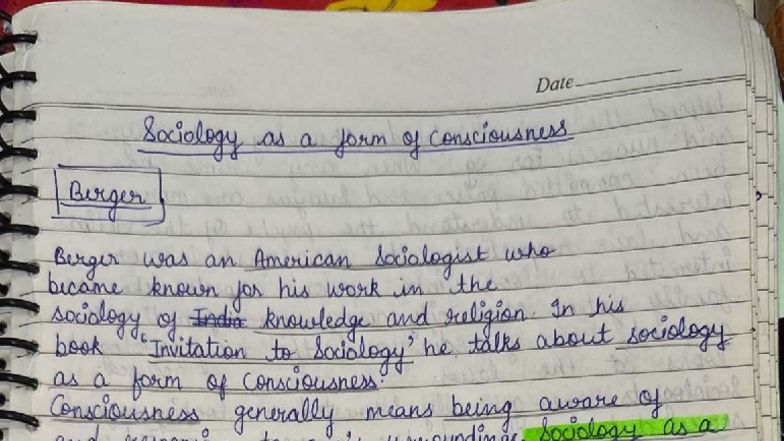 Date
Sociology as a form of consciousness
Berger
Berger was an American Sociologist who
became known for his work in the
sociology of India knowledge and religion. In his
book "Invitation to Sociology" he talks about sociology
as a form of consciousness.
Consciousness generally means being aware of
Sociology as a